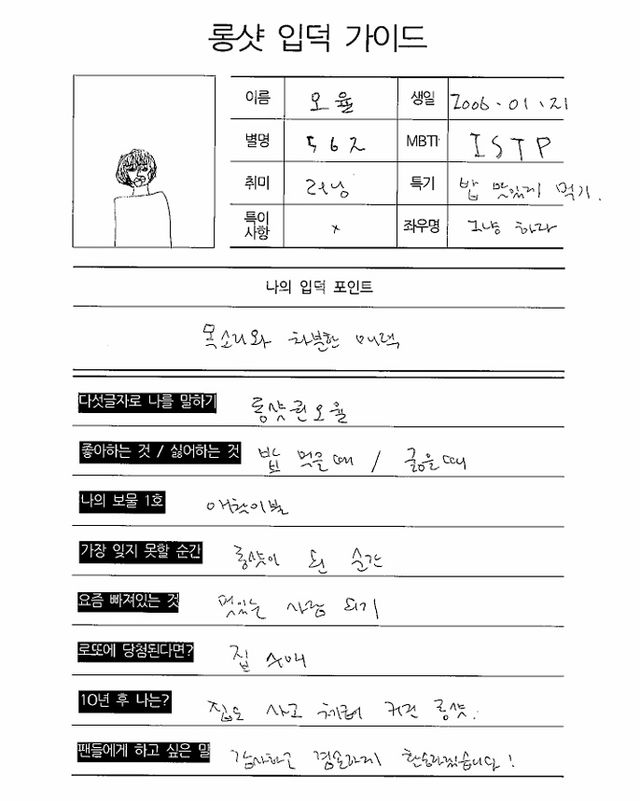 롱샷 입덕 가이드
이름 오율 생일 2006.01.21
별명 562 MBTI ISTP
취미 러닝 특기 밥 맛있게 먹기.
특이사항 x 좌우명 그냥 하라
나의 입덕 포인트
목소리와 차분한 매력
다섯글자로 나를 말하기 롱샷권오율
좋아하는 것 / 싫어하는 것 밥 먹을때 / 굶을때
나의 보물 1호 애착이불
가장 잊지 못할 순간 롱샷이 된 순간
요즘 빠져있는 것 멋있는 사람 되기
로또에 당첨된다면? 집
10년 후 나는? 집도 사고 커진 롱샷.
팬들에게 하고 싶은 말 감사하고 겸손하게 하겠습니다!